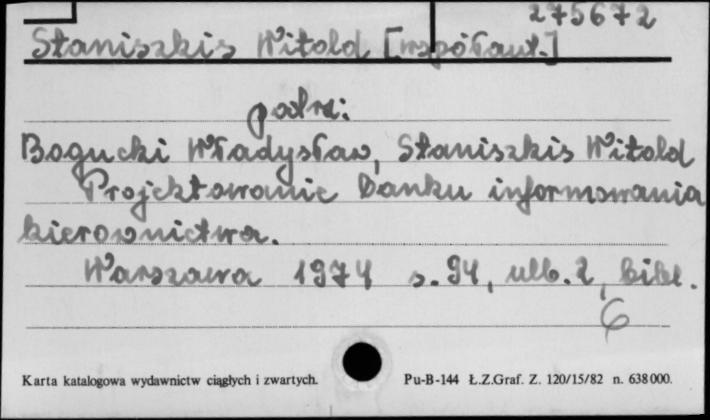 275672
Staniszkis Witold [współaut.]
patrz:
Bogucki Władysław, Staniszkis Witold
Projektowanie banku informowania
kierownictwa.
Warszawa 1974 s. 94, ulb. 2, bibl.
6
Karta katalogowa wydawnictw ciągłych i zwartych. Pu-B-144 Ł.Z.Graf. Z. 120/15/82 n. 638000.